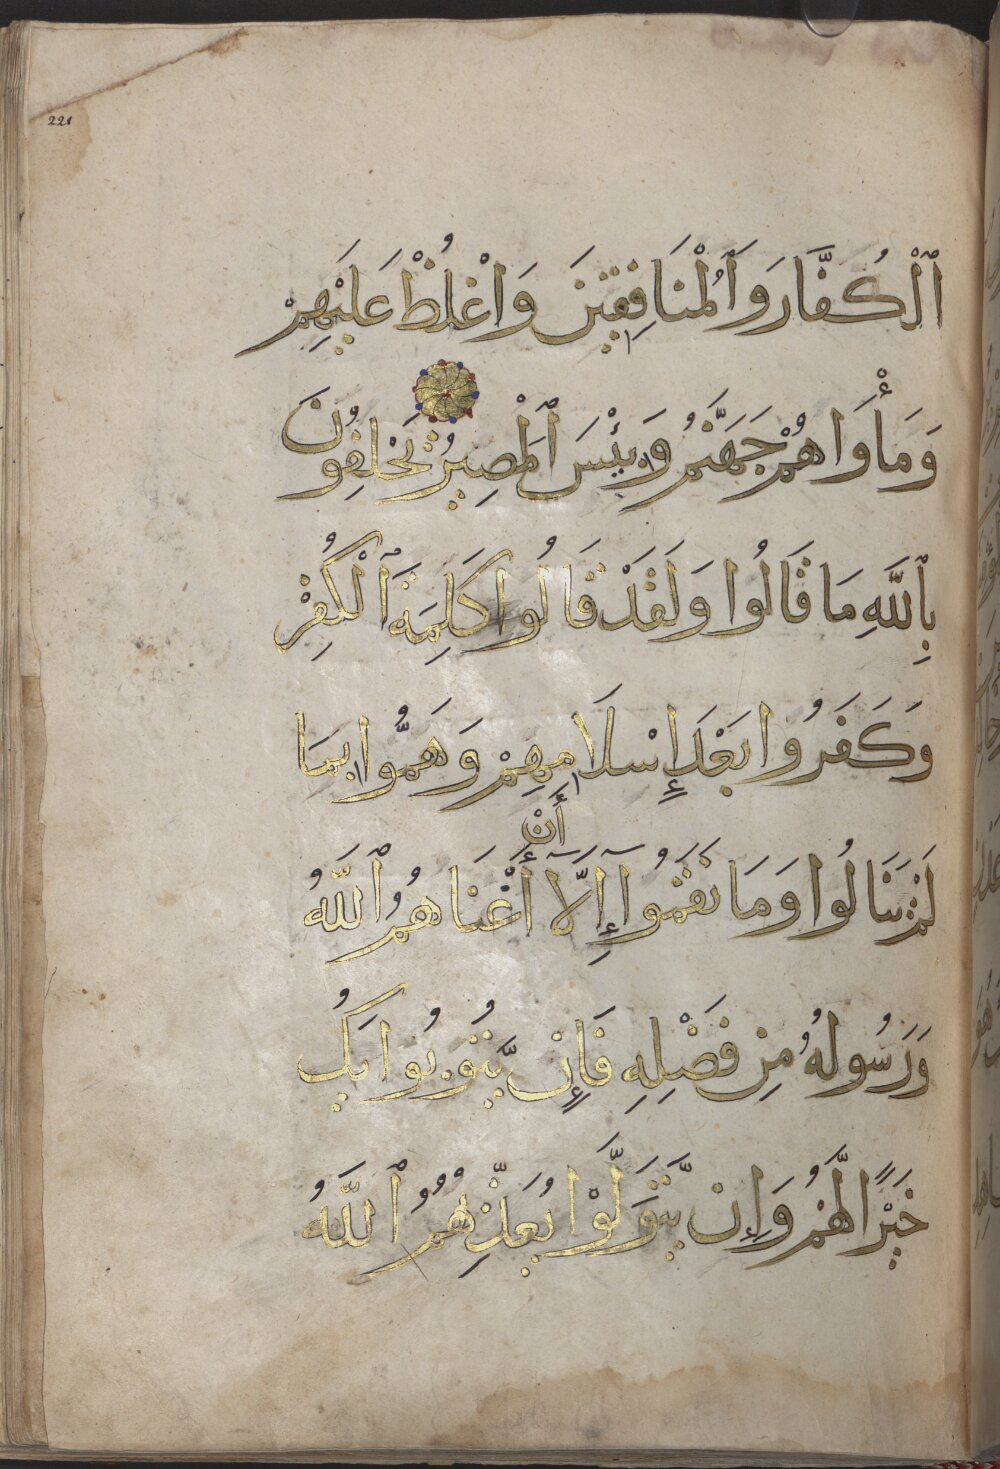 221
ٱلْكُفَّارَ وَٱلْمُنَافِقِينَ وَاغْلُظْ عَلَيْهِمْ
وَمَأْوَاهُمْ جَهَنَّمُ وَبِئْسَ ٱلْمَصِيرُ يَحْلِفُونَ
بِٱللَّهِ مَا قَالُوا وَلَقَدْ قَالُوا كَلِمَةَ ٱلْكُفْرِ
وَكَفَرُوا بَعْدَ إِسْلَامِهِمْ وَهَمُّوا بِمَا
أَنْ
لَمْ يَنَالُوا وَمَا نَقَمُوٓا إِلَّآ أَغْنَاهُمُ ٱللَّهُ
وَرَسُولُهُ مِن فَضْلِهِ فَإِن يَّتُوبُوا يَكُ
خَيْرًا لَّهُمْ وَإِن يَّتَوَلَّوْا يُعَذِّبْهُمُ ٱللَّهُ